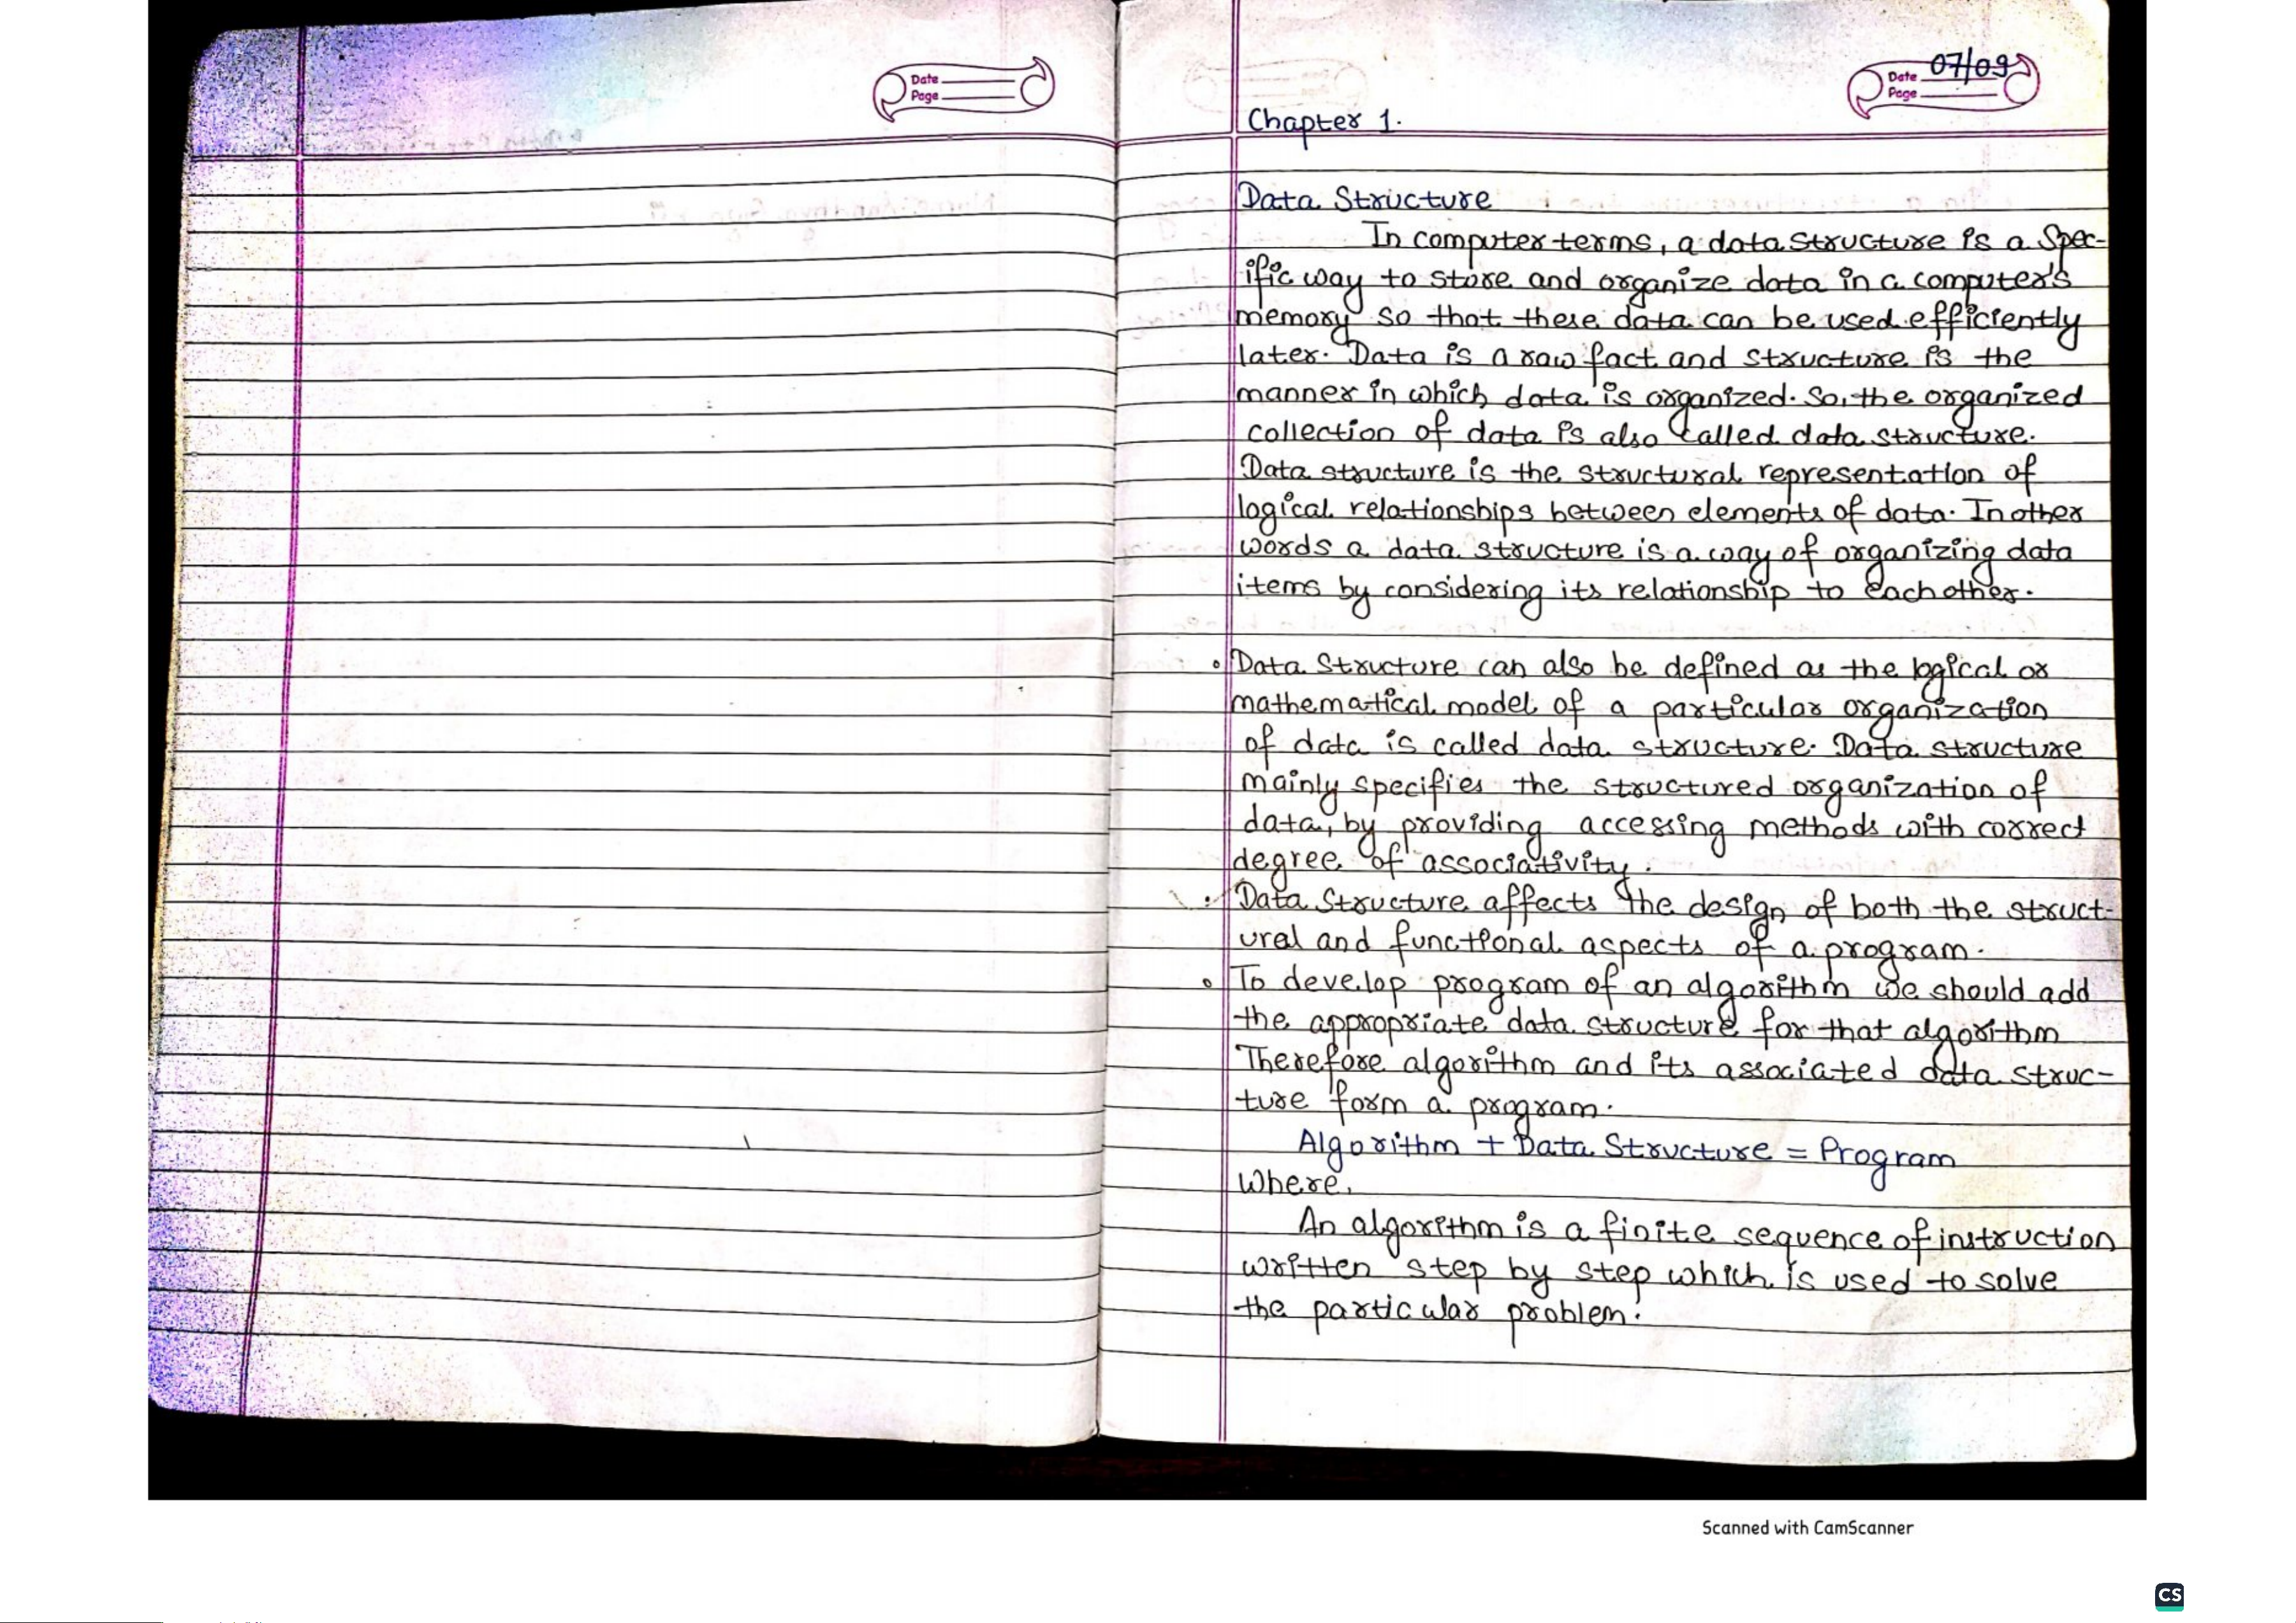 Date
Page
Date 07/09
Page
Chapter 1.
Data Structure
In computer terms, a data structure is a Spec-
ific way to store and organize data in a computer's
memory so that these data can be used efficiently
later. Data is a raw fact and structure is the
manner in which data is organized. So, the organized
collection of data is also called data structure.
Data structure is the structural representation of
logical relationships between elements of data. In other
words a data structure is a way of organizing data
items by considering its relationship to each other.
• Data Structure can also be defined as the logical or
mathematical model of a particular organization
of data is called data structure. Data structure
mainly specifies the structured organization of
data, by providing accessing methods with correct
degree of associativity.
• Data Structure affects the design of both the struct-
ural and functional aspects of a program.
• To develop program of an algorithm we should add
the appropriate data structure for that algorithm
Therefore algorithm and its associated data struc-
ture form a program.
Algorithm + Data Structure = Program
Where,
An algorithm is a finite sequence of instruction
written step by step which is used to solve
the particular problem.
Scanned with CamScanner
CS